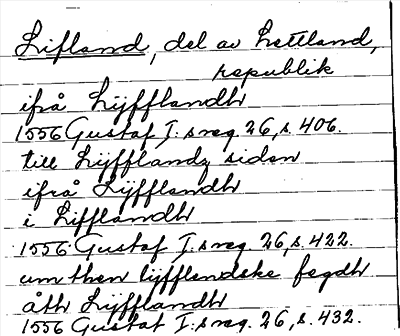 Lifland, del av Lettland,
republik
ifrå Lijfflandh
1556 Gustaf I:s reg. 26, s. 406.
till Lijfflandz sidan
ifrå Lijfflandh
i Lifflandh
1556 Gustaf I:s reg. 26, s. 422.
um then lijfflendske fegdh
åth Lijfflandh
1556 Gustaf I:s reg. 26, s. 432.